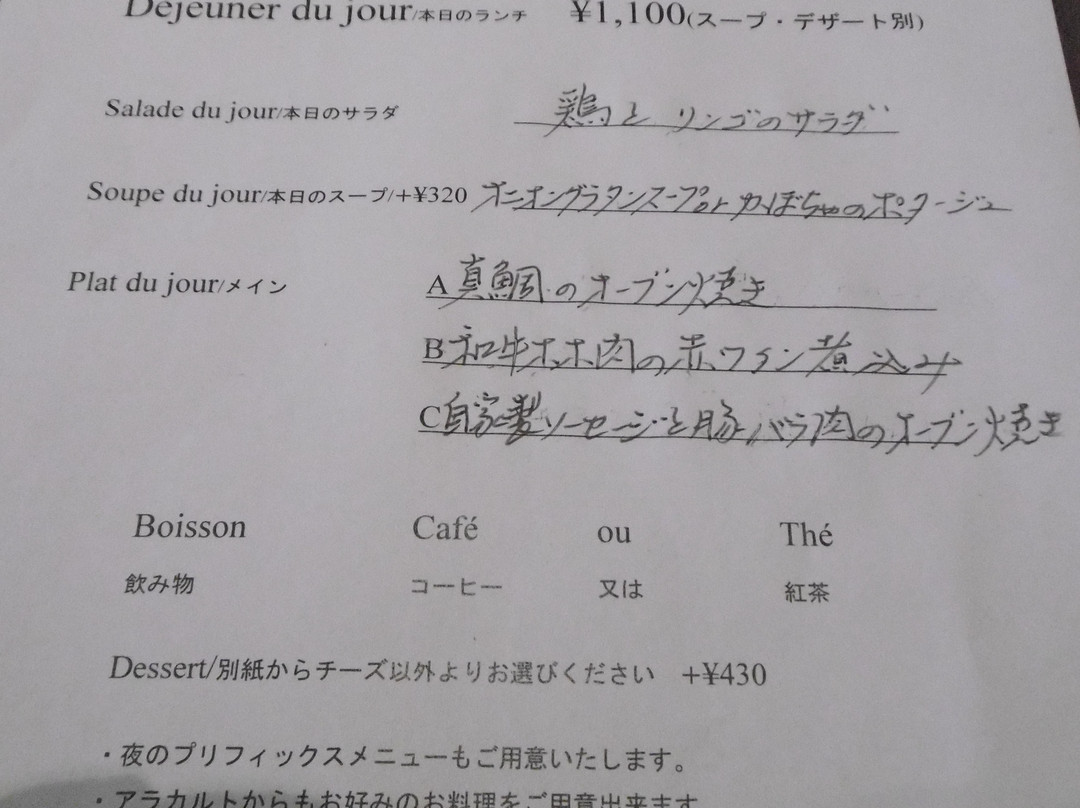 Déjeuner du jour/本日のランチ ¥1,100(スープ・デザート別)
Salade du jour/本日のサラダ 鶏とリンゴのサラダ
Soupe du jour/本日のスープ/+¥320 オニオングラタンスープor かぼちゃのポタージュ
Plat du jour/メイン A 真鯛のオーブン焼き
B 和牛ホホ肉の赤ワイン煮込み
C 自家製ソーセージと豚バラ肉のオーブン焼き
Boisson Café ou Thé
飲み物 コーヒー 又は 紅茶
Dessert/別紙からチーズ以外よりお選びください +¥430
・夜のプリフィックスメニューもご用意いたします。
・アラカルトからもお好みのお料理をご用意出来ます